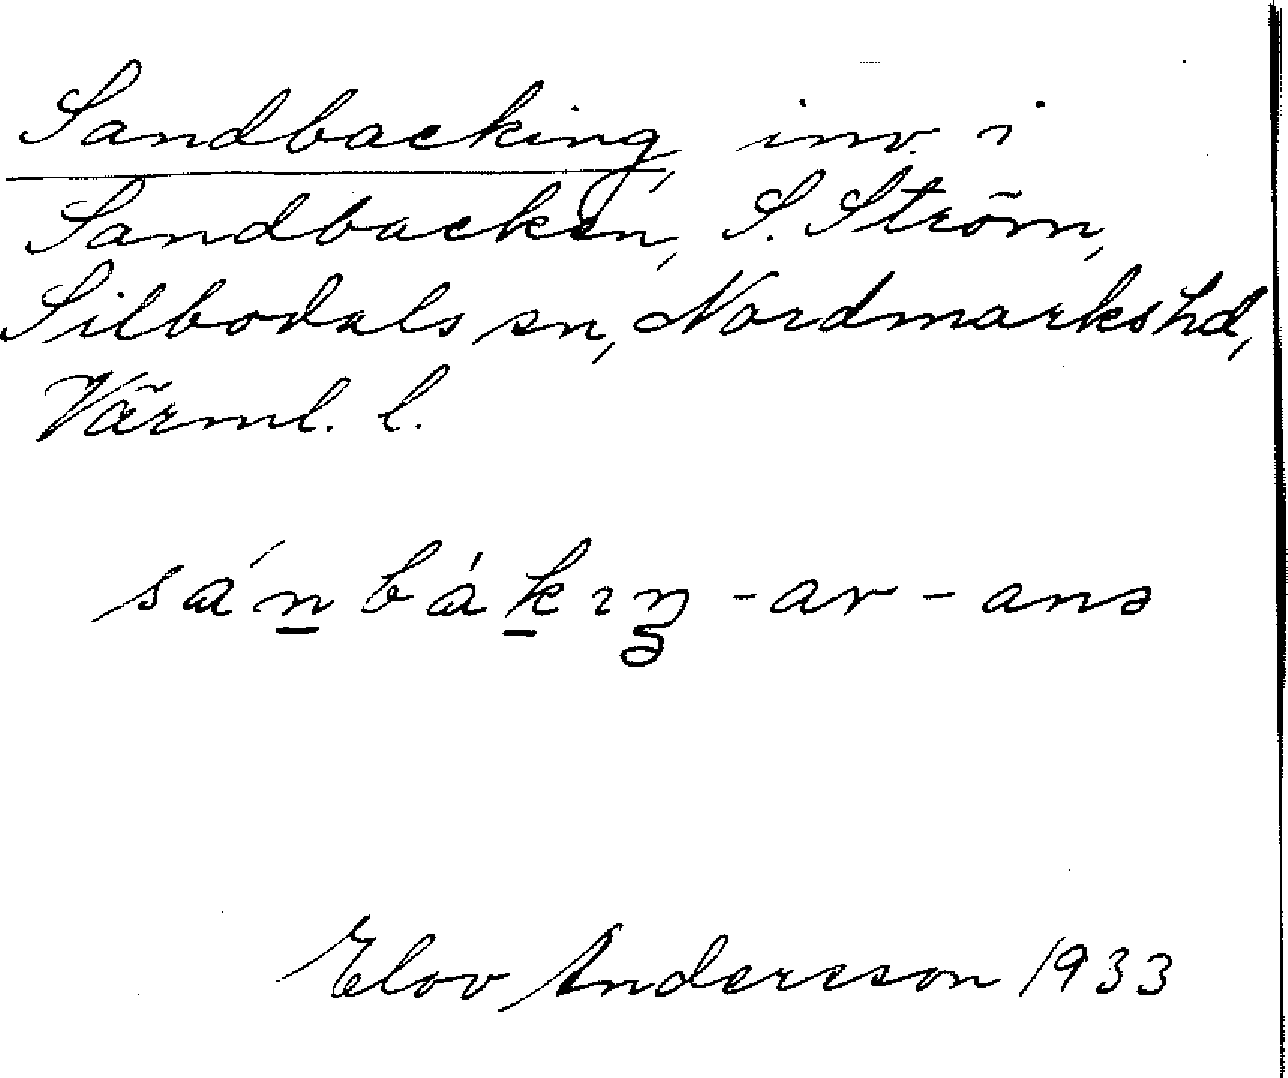 Sandbacking, inv. i
Sandbacken, S. Ström,
Silbodals sn, Nordmarks hd,
Värml. l.
sánbákıŋ -ar -anə
Elov Andersson 1933